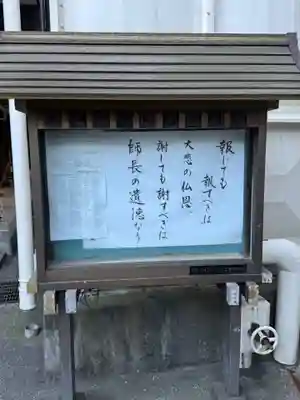 報じても
報ずべきは
大悲の仏恩、
謝しても謝すべきは
師長の遺徳なり